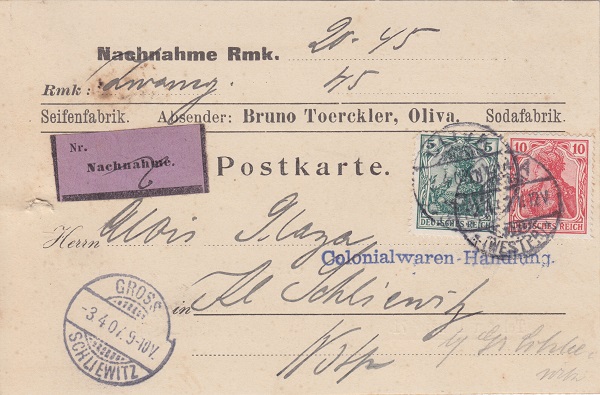 Nachnahme Rmk. 20.45
Rmk: Zwanzig. 45
Seifenfabrik. Absender: Bruno Toerckler, Oliva. Sodafabrik.
Nr.
Nachnahme.
Postkarte.
5 5
DEUTSCHES REICH
10 10
DEUTSCHES REICH
(WESTPR.)
Herrn Alois Plaza
Colonialwaren-Handlung.
in Kl Schliewitz
Wstp
GROSS
-3.4.07.9-10V.
SCHLIEWITZ